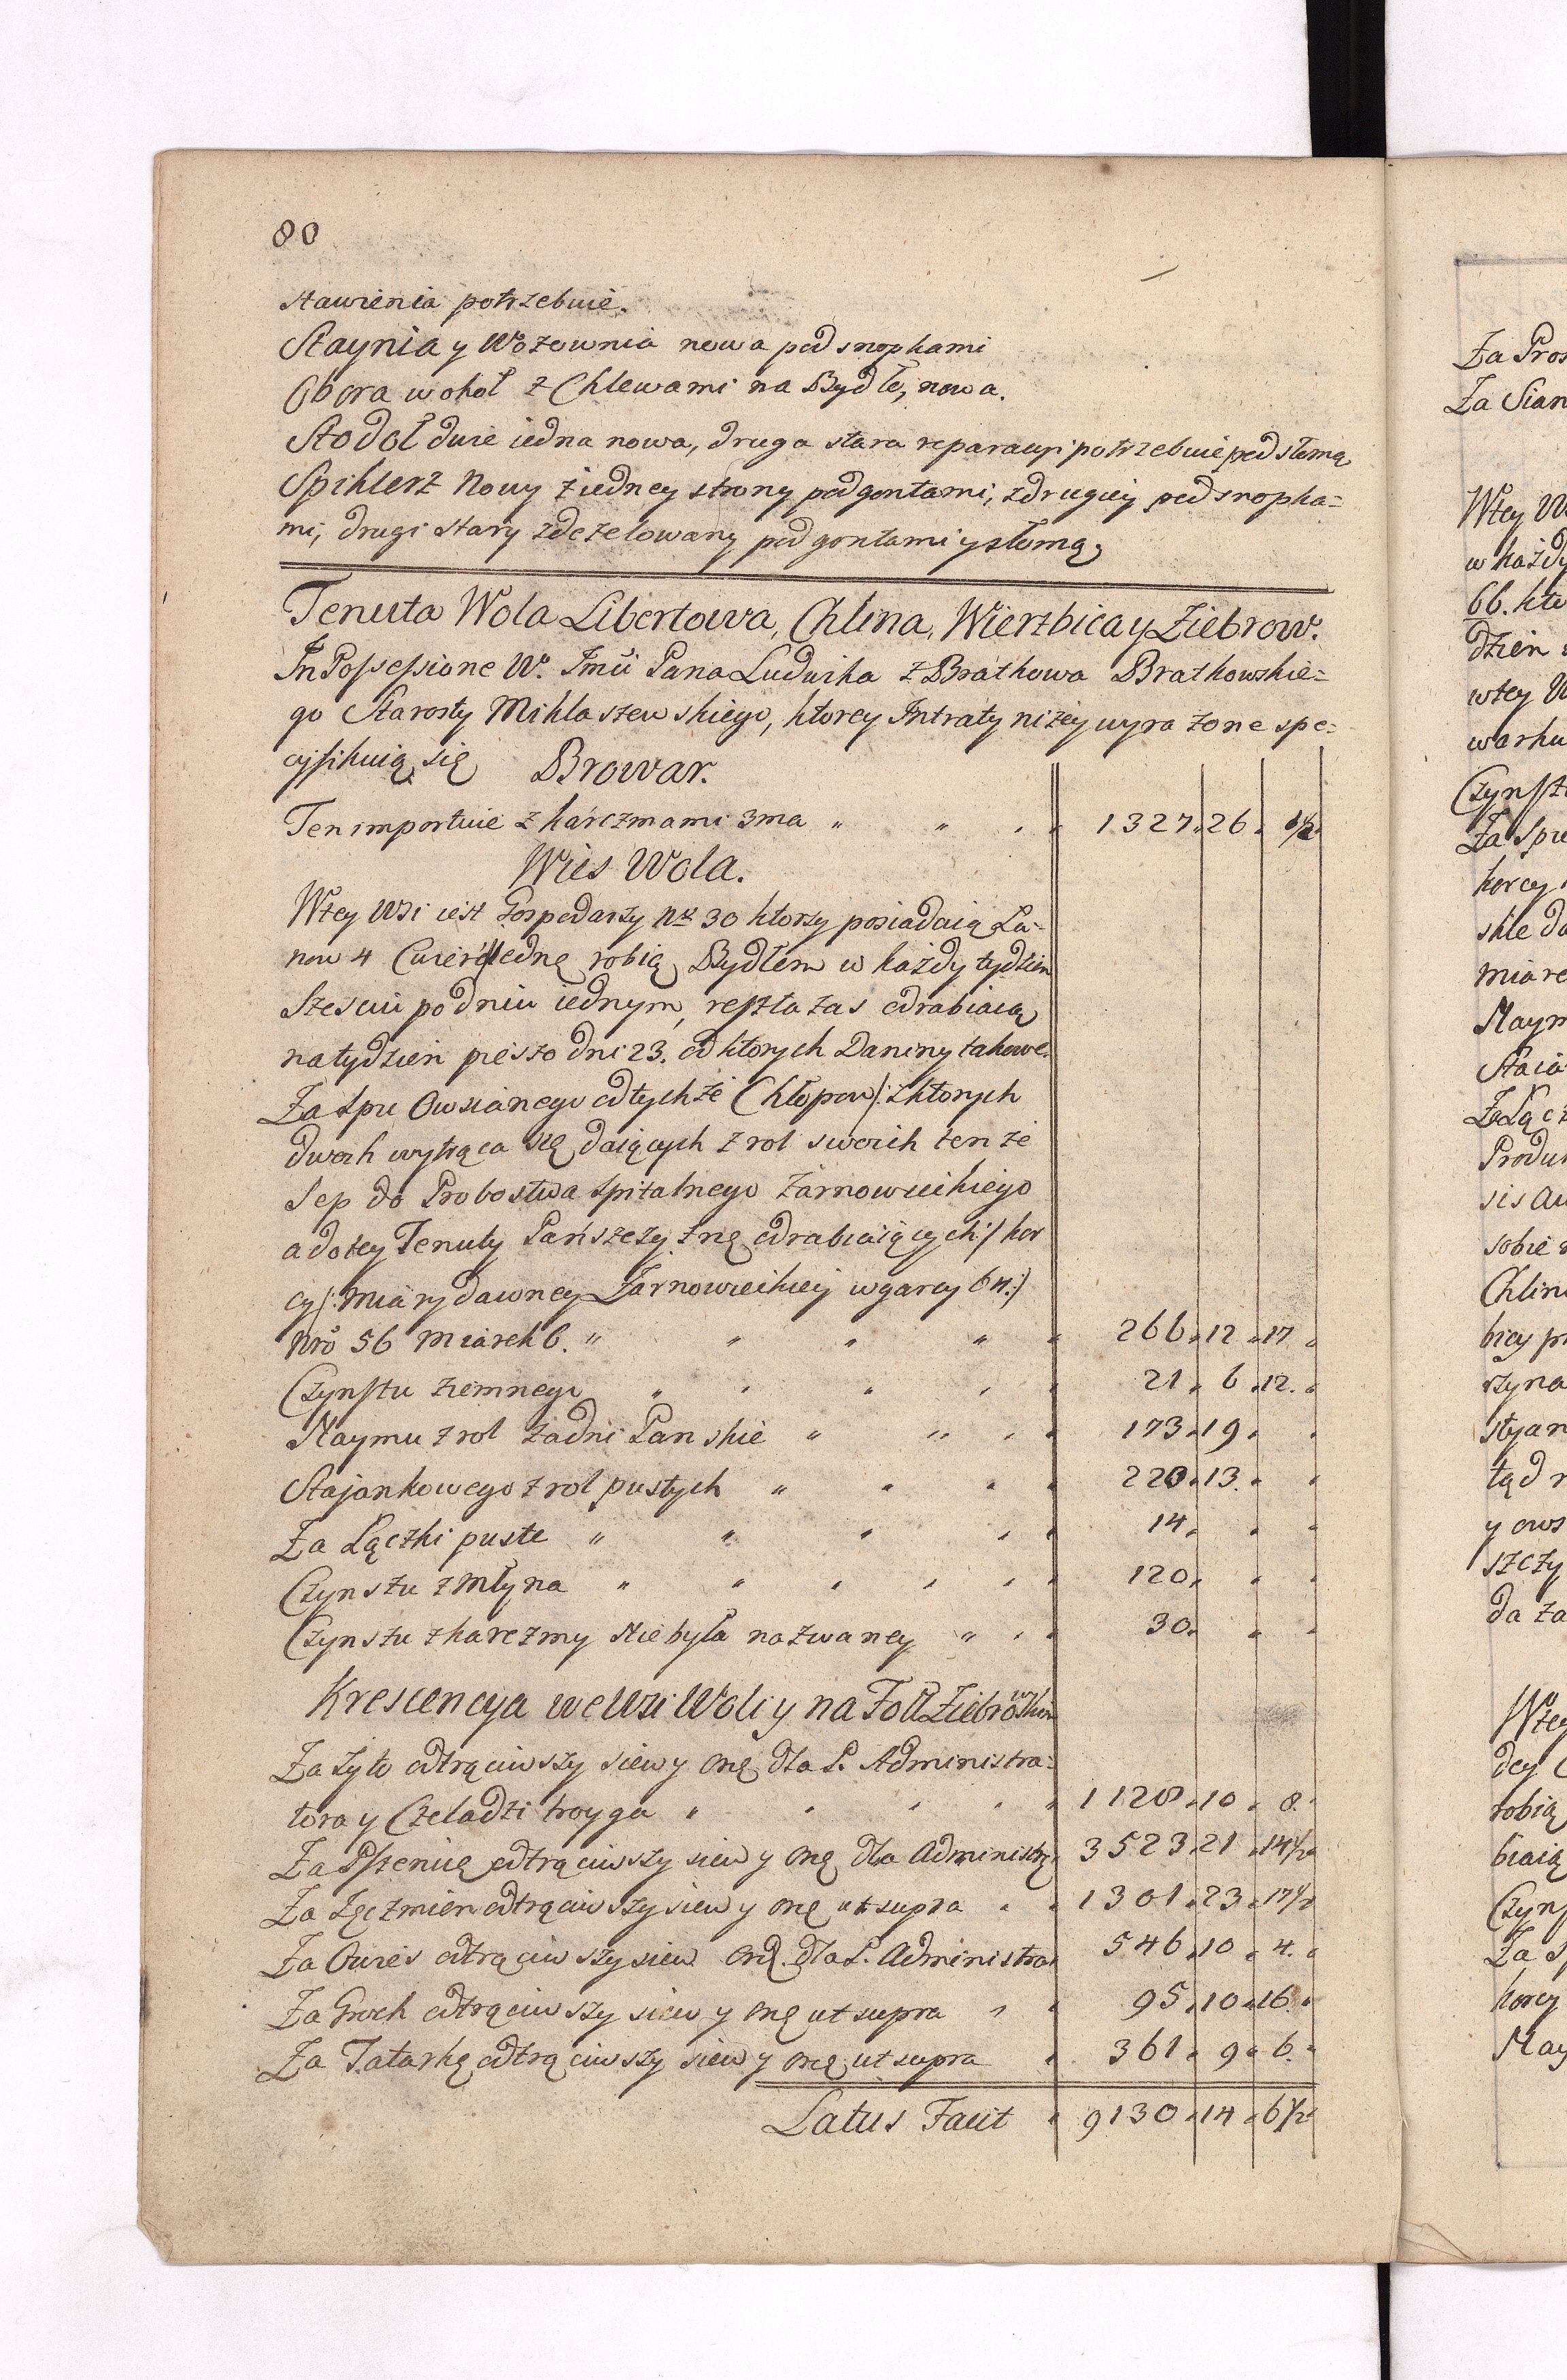 80
stawienia potrzebuie.
Staynia y Wozownia nowa pod snopkami
Obora wokoł z Chlewami na Bydło, nowa.
Stodoł dwie iedna nowa, druga stara reparacyi potrzebuie pod słomą
Spihlerz Nowy z iedney strony pod gontami, z drugiey pod snopka=
mi, drugi stary zdezelowany pod gontami y słomą,
Tenuta Wola Libertowa, Chlina, Wierzbica y Ziebrow.
In Possessione W. Jmći Pana Ludwika z Bratkowa Bratkowskie=
go Starosty Miklaszewskiego, ktorey Intraty niżey wyrażone spe=
cyfikuią się Browar.
Ten importuie z karczmami 3ma 1327 26 ½
Wies Wola.
W tey Wsi iest Gospodarzy Nro 30 ktorzy posiadaią Ła=
now 4 Cwierć iedne robią Bydłem w każdy tydzien
Szesciu po dniu iednym, reszta zas odrabiaią
na tydzien pieszo dni 23. od ktorych Daniny takowe.
Za Spu Owsianego od tychże Chłopow /: z ktorych
dwoch wytrąca się daiących z rol swoich tenże
Sep do Probostwa Szpitalnego Zarnowieckiego
a do tey Tenuty Pańszczyznę odrabiaiących :/ kor
cy /: Miary dawney Zarnowieckiey w garcy 64 :/
Nro 56 Miarek 6. 266 12 17
Czynszu ziemnego 21 6 12.
Naymu z rol za dni Panskie 173 19
Stajankowego z rol pustych 220 13.
Za Łączki puste 14
Czynszu z Młyna 120
Czynszu z karczmy Niebyła nazwaney 30
Krescencya we Wsi Woli y na Foll. Ziebrowskim
Za Zyto odtrąciwszy siew y Ord. dla P. Administra=
tora y Czeladzi troyga 1128 10 8.
Za Pszenicę odtrąciwszy siew y Ord. dla Administr. 3523 21 14½
Za Jęczmien odtrąciwszy siew y Ord. ut supra 1301 23 17½
Za Owies odtrąciwszy siew Ord. dla P. Administra 546 10 4.
Za Groch odtrąciwszy siew y Ord. ut supra 95 10 16.
Za Tatarkę odtrąciwszy siew y Ord. ut supra 361 9 6.
Latus Facit 9130 14 6½
Za Pros
Za Sian
W tey W
w każdy
66. kto
dzien
w tey W
warku
Czynsz
Za Spu
korcy
skie do
miare
Naym
Staia
Za Łącz
Produk
sis au
sobie
Chlin
bicy p
szyna
styan
tąd n
y ows
szczy
da za
W tey
dey
robią
biaią
Czyns
Za S
korcy
Nay